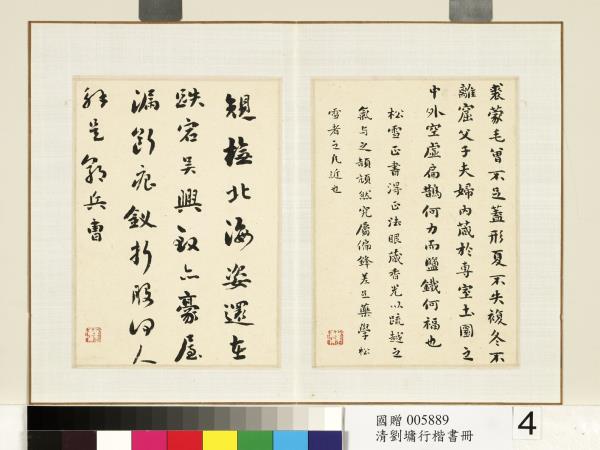 裘蒙毛曾不足蓋形夏不失複冬不
離窟父子夫婦內藏於專室土圜之
中外空虛扁鵲何力而鹽鐵何福也
松雪正書得正法眼藏香光以疏越之
氣与之頡頏然究屬偏鋒差足藥學松
雪者之凡近也
規橅北海姿還在
跌宕吳興致亦豪屋
漏痕釵折股何人
解是兵曹
國贈 005889
清劉墉行楷書冊
4